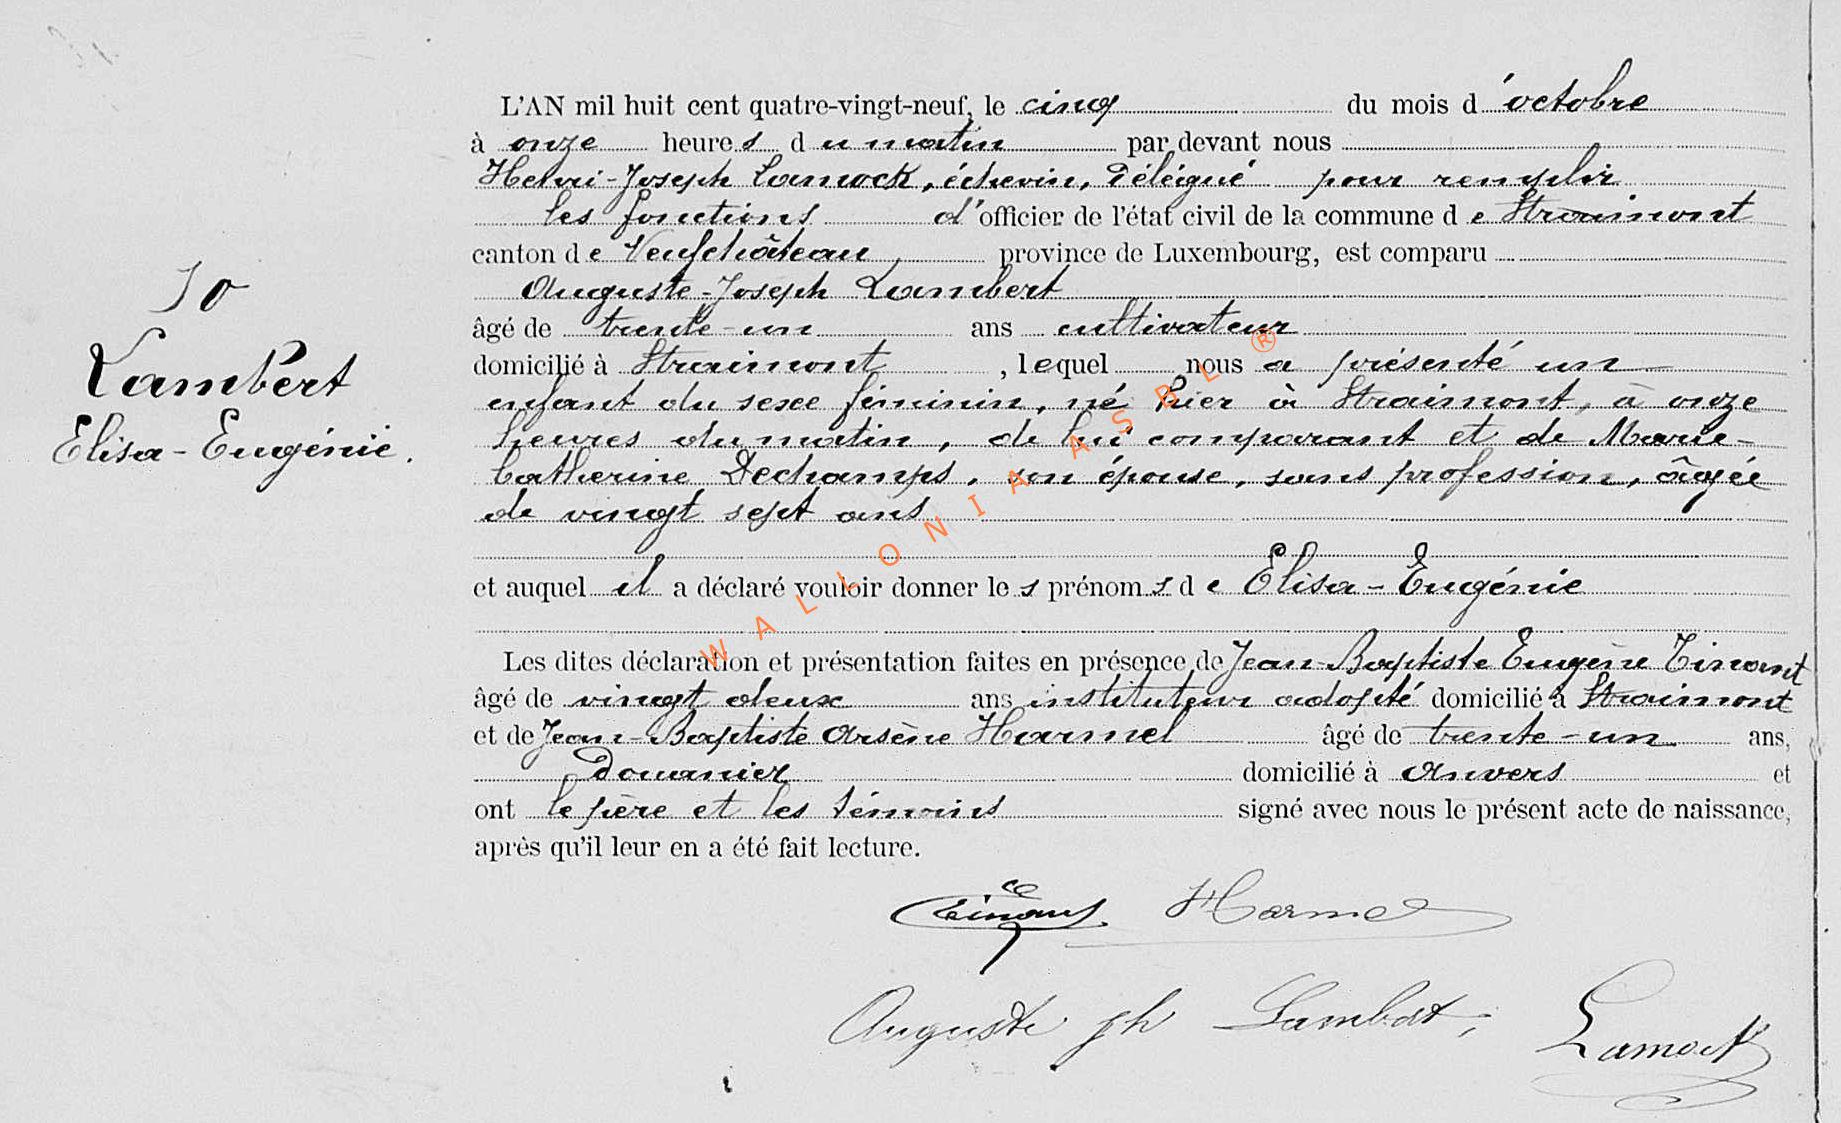 L'AN mil huit cent quatre-vingt-neuf, le cinq du mois d'octobre
à onze heures du matin par devant nous
Henri-Joseph Lamock, échevin, délégué pour remplir
les fonctions d'officier de l'état civil de la commune de Straimont
canton de Neufchâteau province de Luxembourg, est comparu
Auguste-Joseph Lambert
âgé de trente-un ans cultivateur
domicilié à Straimont, lequel nous a présenté un
enfant du sexe féminin, né hier à Straimont, à onze
heures du matin, de lui comparant et de Marie-
Catherine Dechamps, son épouse, sans profession, âgée
de vingt sept ans
et auquel il a déclaré vouloir donner les prénoms de Elisa-Eugénie
Les dites déclaration et présentation faites en présence de Jean-Baptiste Eugène Tinant
âgé de vingt deux ans instituteur adopté domicilié à Straimont
et de Jean-Baptiste Arsène Harmel âgé de trente-un ans,
Douanier domicilié à Anvers et
ont le père et les témoins signé avec nous le présent acte de naissance,
après qu'il leur en a été fait lecture.
10
Lambert
Elisa-Eugénie.
Tinant Harmel
Auguste Jph Lambert
Lamock
WALLONIA ASBL ®